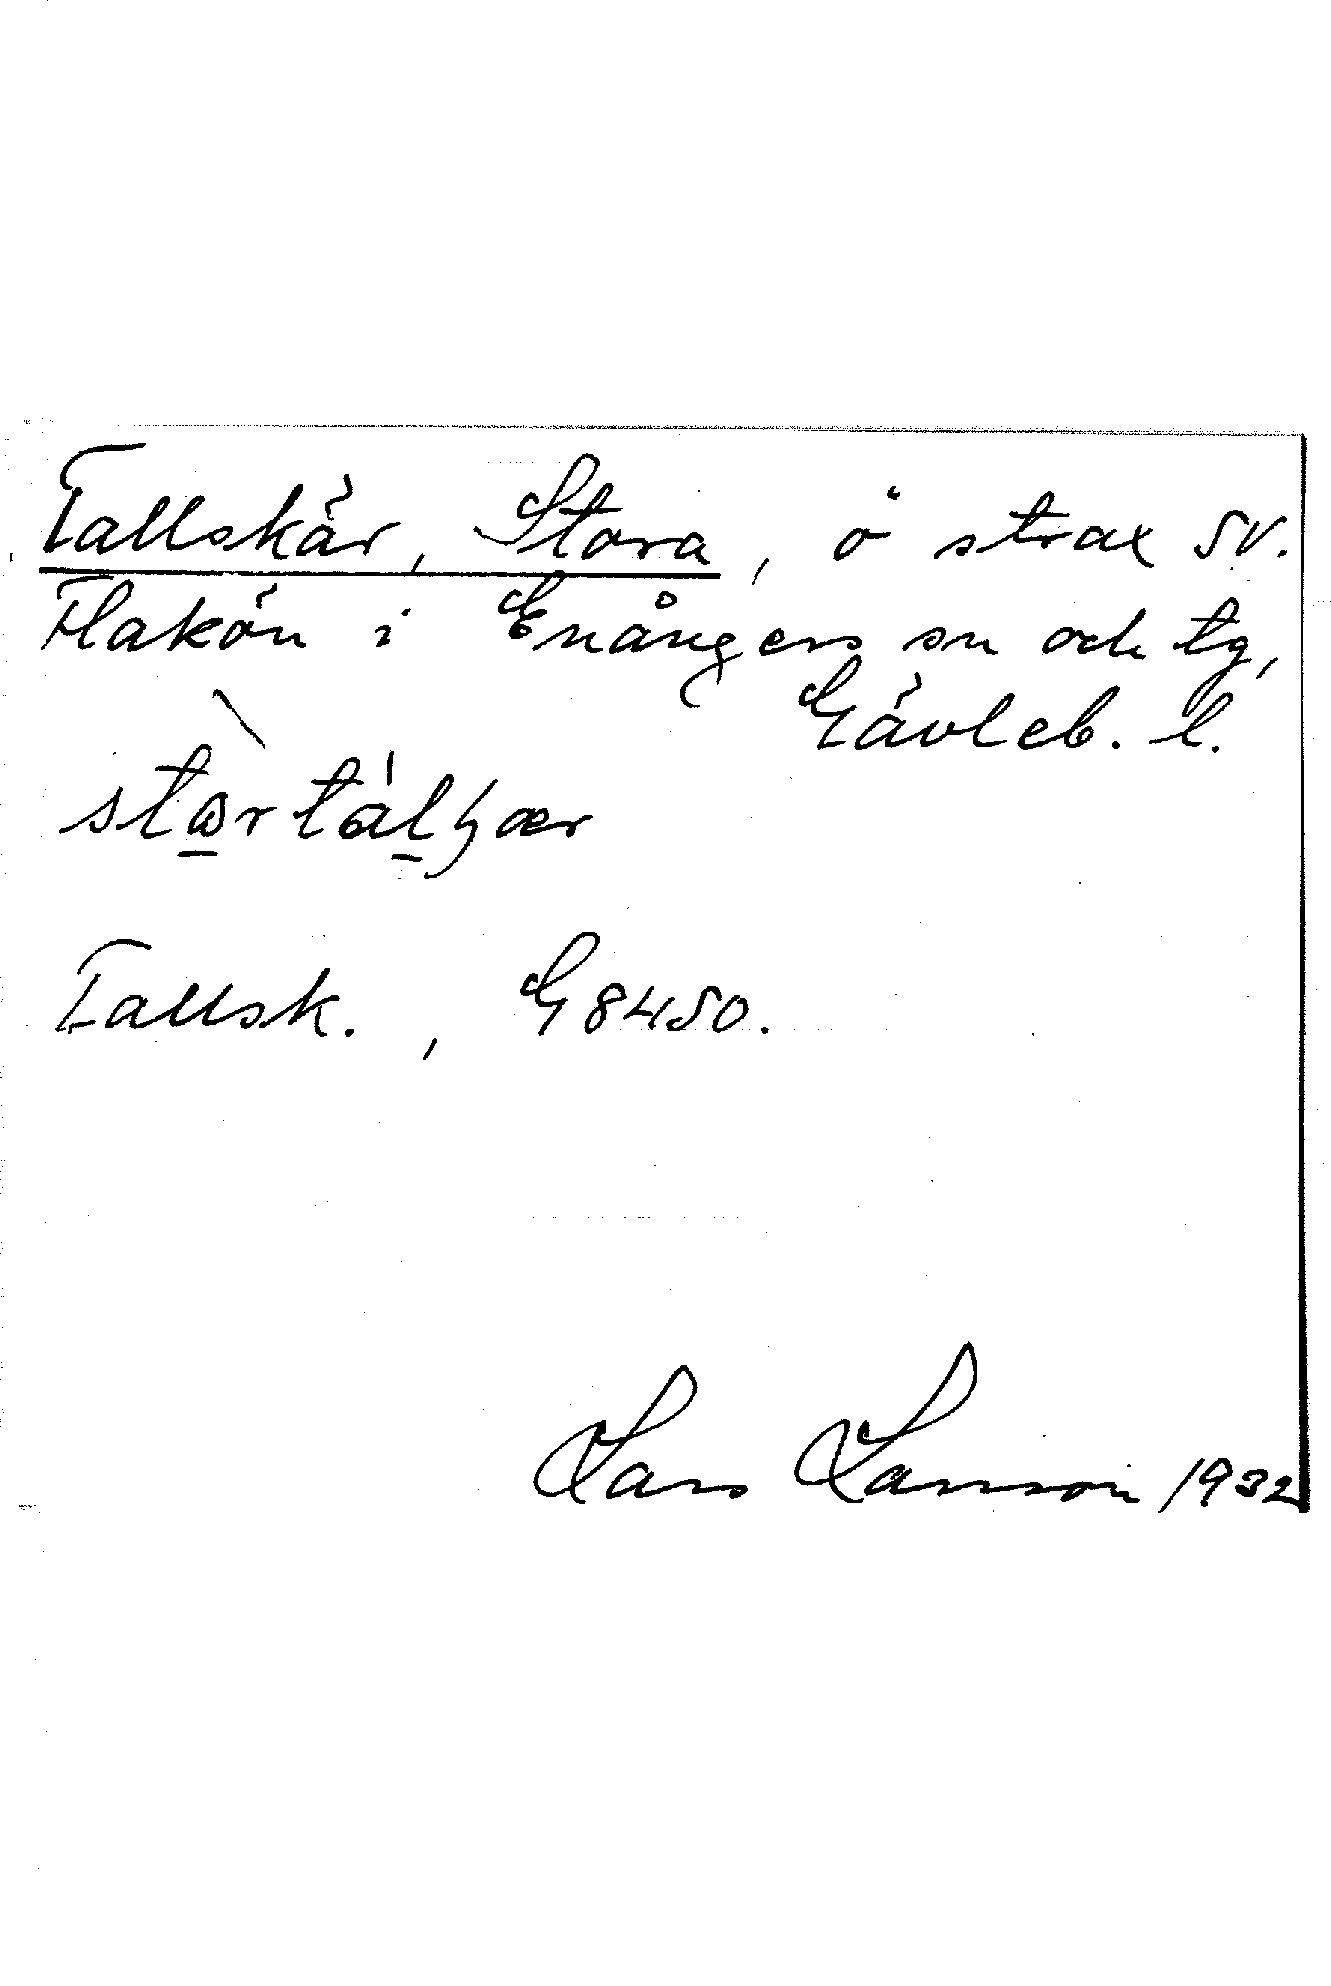 Tallskär, Stora, ö strax SV.
Flakön i Enångers sn och tg,
Gävleb. l.
Tallsk., G8450.
Lars Larsson 1932